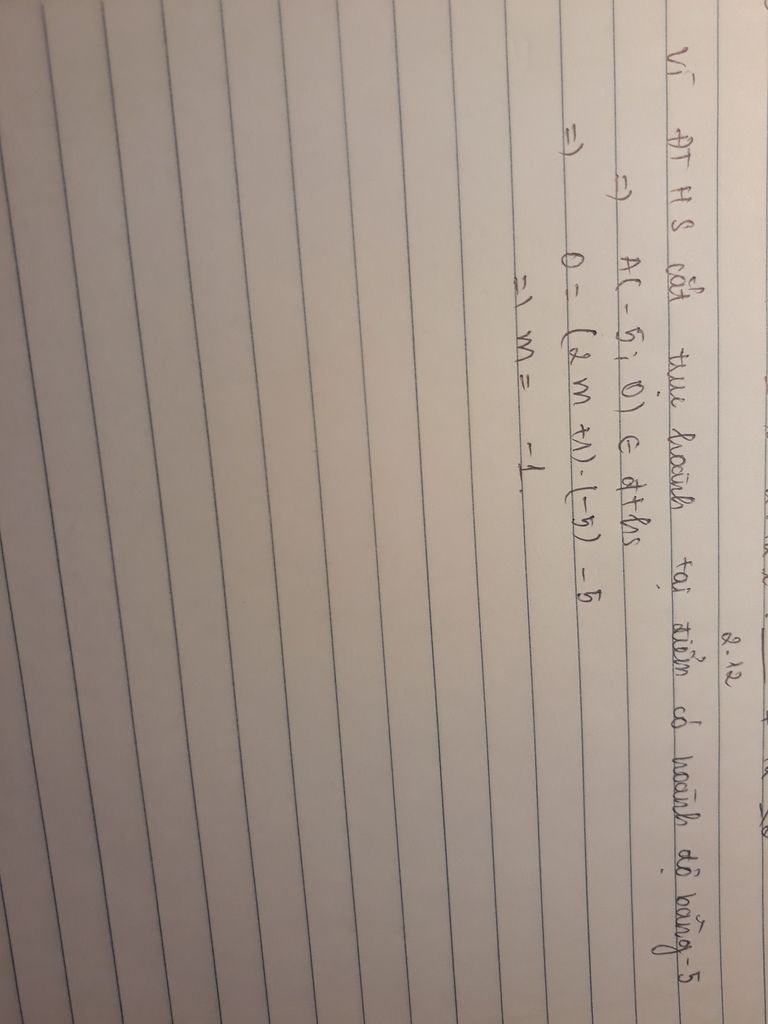 2.12
Vì ĐT HS cắt trục hoành tại điểm có hoành độ bằng -5
=) A(-5; 0) ∈ đths
=) 0 = (2m+1).(-5) - 5
=) m = -1.